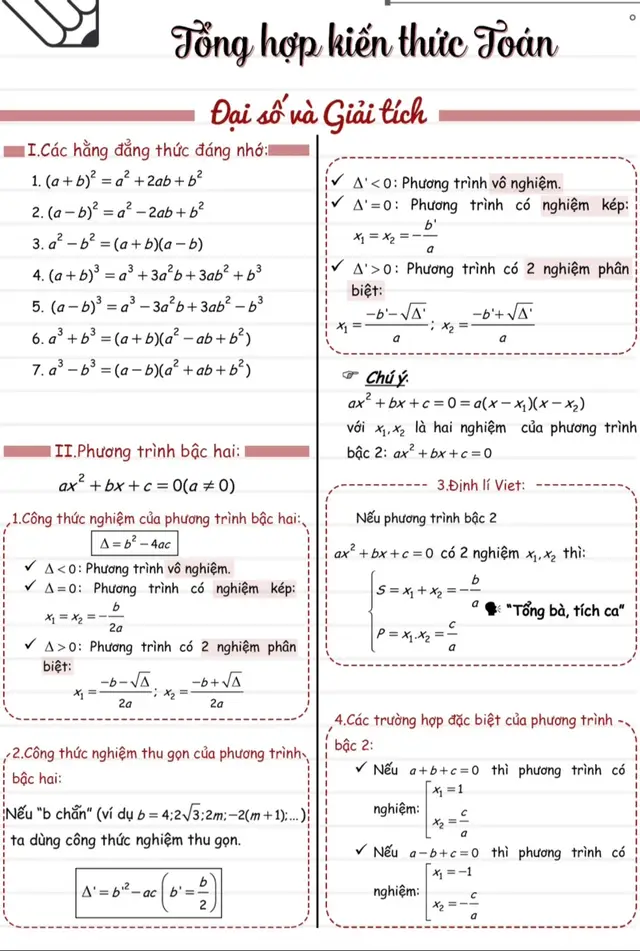 Tổng hợp kiến thức Toán
Đại số và Giải tích
I.Các hằng đẳng thức đáng nhớ:
1. (a + b)² = a² + 2ab + b²
2. (a − b)² = a² − 2ab + b²
3. a² − b² = (a + b)(a − b)
4. (a + b)³ = a³ + 3a²b + 3ab² + b³
5. (a − b)³ = a³ − 3a²b + 3ab² − b³
6. a³ + b³ = (a + b)(a² − ab + b²)
7. a³ − b³ = (a − b)(a² + ab + b²)
II.Phương trình bậc hai:
ax² + bx + c = 0(a ≠ 0)
1.Công thức nghiệm của phương trình bậc hai:
Δ = b² − 4ac
✓ Δ < 0: Phương trình vô nghiệm.
✓ Δ = 0: Phương trình có nghiệm kép:
x₁ = x₂ = −b/2a
✓ Δ > 0: Phương trình có 2 nghiệm phân
biệt:
x₁ = (−b − √Δ)/2a; x₂ = (−b + √Δ)/2a
2.Công thức nghiệm thu gọn của phương trình
bậc hai:
Nếu "b chẵn" (ví dụ b = 4;2√3;2m;−2(m + 1);...)
ta dùng công thức nghiệm thu gọn.
Δ' = b'² − ac (b' = b/2)
✓ Δ' < 0: Phương trình vô nghiệm.
✓ Δ' = 0: Phương trình có nghiệm kép:
x₁ = x₂ = −b'/a
✓ Δ' > 0: Phương trình có 2 nghiệm phân
biệt:
x₁ = (−b' − √Δ')/a; x₂ = (−b' + √Δ')/a
☞ Chú ý:
ax² + bx + c = 0 = a(x − x₁)(x − x₂)
với x₁,x₂ là hai nghiệm của phương trình
bậc 2: ax² + bx + c = 0
3.Định lí Viet:
Nếu phương trình bậc 2
ax² + bx + c = 0 có 2 nghiệm x₁,x₂ thì:
S = x₁ + x₂ = −b/a
"Tổng bà, tích ca"
P = x₁.x₂ = c/a
4.Các trường hợp đặc biệt của phương trình
bậc 2:
✓ Nếu a + b + c = 0 thì phương trình có
nghiệm: [x₁ = 1
x₂ = c/a
✓ Nếu a − b + c = 0 thì phương trình có
nghiệm: [x₁ = −1
x₂ = −c/a